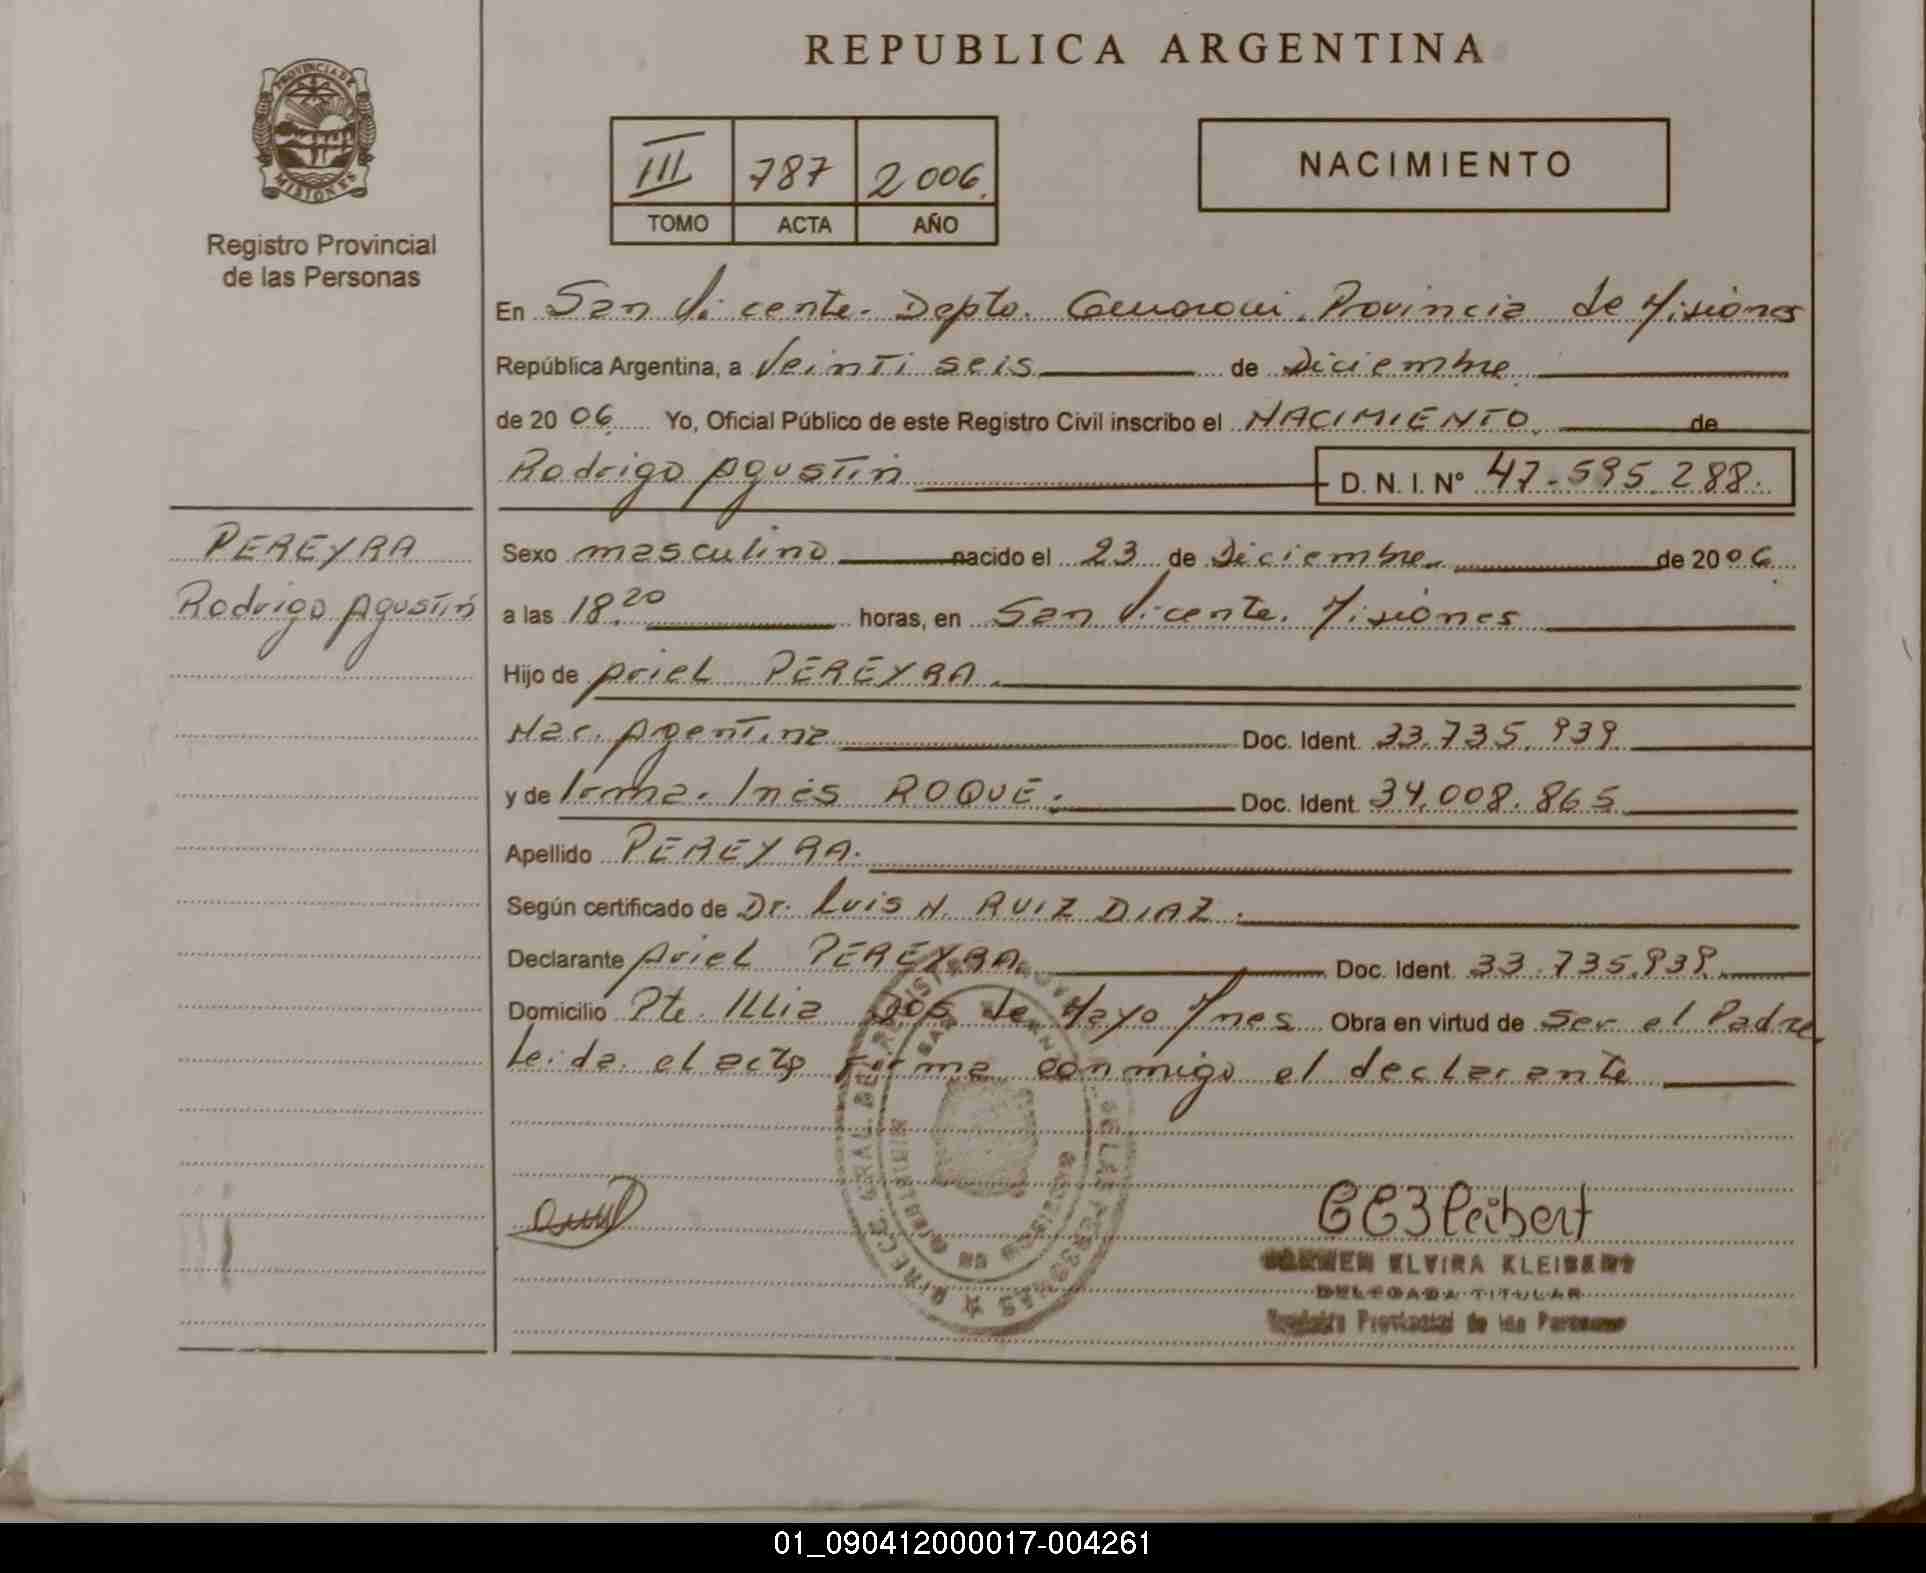 REPUBLICA ARGENTINA
PROVINCIA DE
MISIONES
Registro Provincial
de las Personas
III 787 2006.
TOMO ACTA AÑO
NACIMIENTO
En San Vicente. Depto. Guaraní. Provincia de Misiones
República Argentina, a Veinti seis de Diciembre
de 2006. Yo, Oficial Público de este Registro Civil inscribo el NACIMIENTO. de
Rodrigo Agustín D. N. I. Nº 47.595.288.
PEREYRA
Rodrigo Agustín
Sexo masculino nacido el 23 de Diciembre. de 2006.
a las 18.20 horas, en San Vicente. Misiones
Hijo de Ariel PEREYRA.
Nac. Agentina Doc. Ident. 33.735.939
y de Irma. Inés ROQUE. Doc. Ident. 34.008.865
Apellido PEREYRA.
Según certificado de Dr. Luis N. RUIZ DIAZ.
Declarante Ariel PEREYRA. Doc. Ident. 33.735.939.
Domicilio Pte. Illia Dos de Mayo Mnes Obra en virtud de Ser el Padre
Leida el acta Firma conmigo el declarante
CARMEN ELVIRA KLEIBERT
DELEGADA TITULAR
Registro Provincial de las Personas
01_090412000017-004261